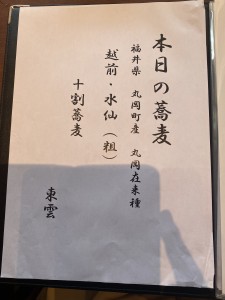 本日の蕎麦
福井県 丸岡町産 丸岡在来種
越前・水仙(粗)
十割蕎麦
東雲